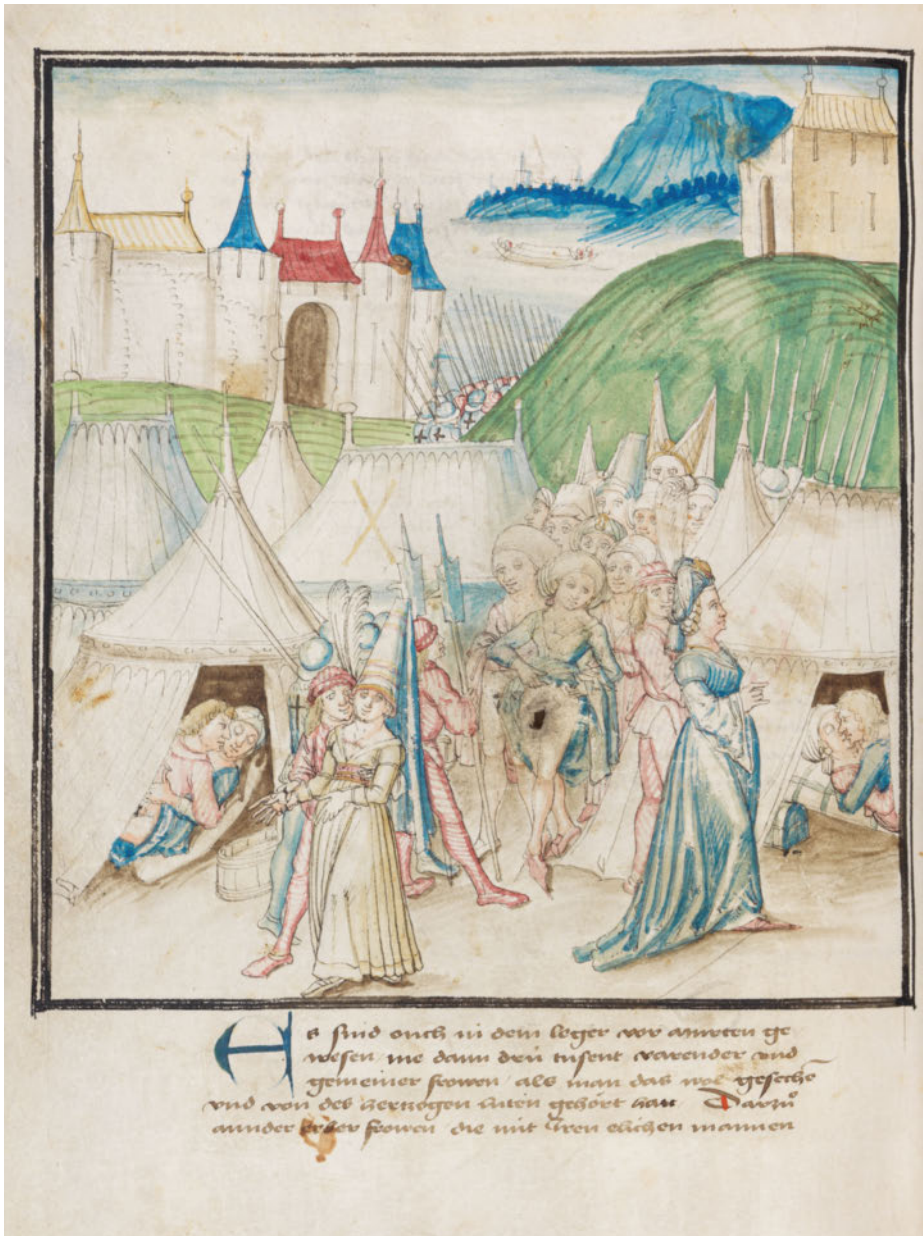 Es sind ouch in dem leger vor murten ge
wesen me dann drú tusent varender und
gemeiner frowen als man das wol gesechen
und von des hertzogen lúten gehört hatt Darzů
ander erber frowen die mit Iren elichen mannen